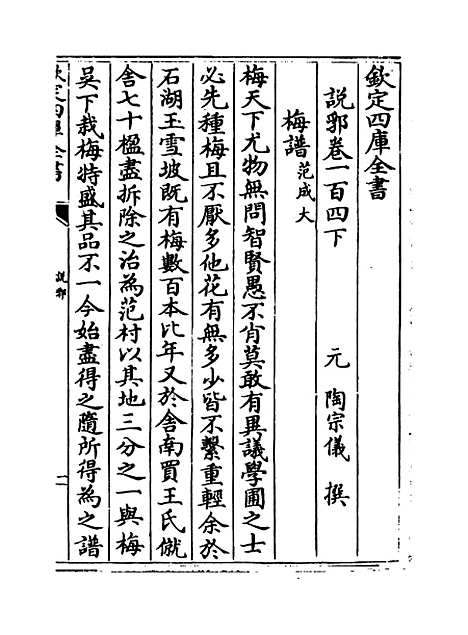 欽定四庫全書
說郛卷一百四下
元 陶宗儀 撰
梅譜 范成大
梅天下尤物無問智賢愚不肖莫敢有異議學圃之士
必先種梅且不厭多他花有無多少皆不繫重輕余於
石湖玉雪坡既有梅數百本比年又於舍南買王氏僦
舍七十楹盡拆除之治為范村以其地三分之一與梅
吳下栽梅特盛其品不一今始盡得之隨所得為之譜
欽定四庫全書
說郛
一